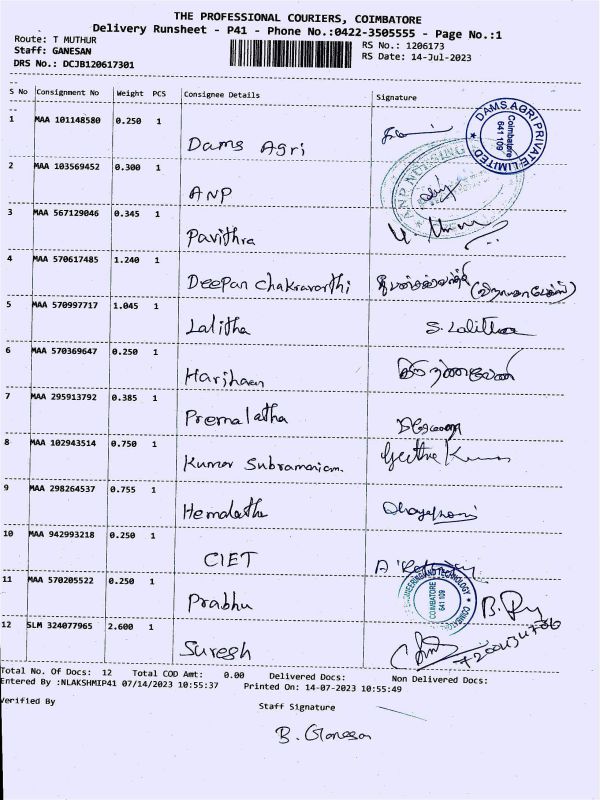 THE PROFESSIONAL COURIERS, COIMBATORE
Delivery Runsheet - P41 - Phone No.:0422-3505555 - Page No.:1
Route: T MUTHUR
RS No.: 1206173
Staff: GANESAN
RS Date: 14-Jul-2023
DRS No.: DCJB120617301
S No Consignment No Weight PCS Consignee Details Signature
1 MAA 101148580 0.250 1
Dams Agri
DAMS AGRI PRIVATE LIMITED
Coimbatore
641 109
2 MAA 103569452 0.300 1
ANP
ANP
3 MAA 567129046 0.345 1
Pavithra
4 MAA 570617485 1.240 1
Deepan Chakravarthi
5 MAA 570997717 1.045 1
Lalitha S. Lalitha
6 MAA 570369647 0.250 1
7 MAA 295913792 0.385 1
Premalatha
8 MAA 102943514 0.750 1
Kumar Subramaniam. Geetha Kumar
9 MAA 298264537 0.755 1
Hemalatha
10 MAA 942993218 0.250 1
CIET
ENGINEERING AND TECHNOLOGY
COIMBATORE
641 109
11 MAA 570205522 0.250 1
Prabhu
12 SLM 324077965 2.600 1
Suresh
Total No. Of Docs: 12 Total COD Amt: 0.00 Delivered Docs: Non Delivered Docs:
Entered By :NLAKSHMIP41 07/14/2023 10:55:37 Printed On: 14-07-2023 10:55:49
Verified By
Staff Signature
B. Ganesan